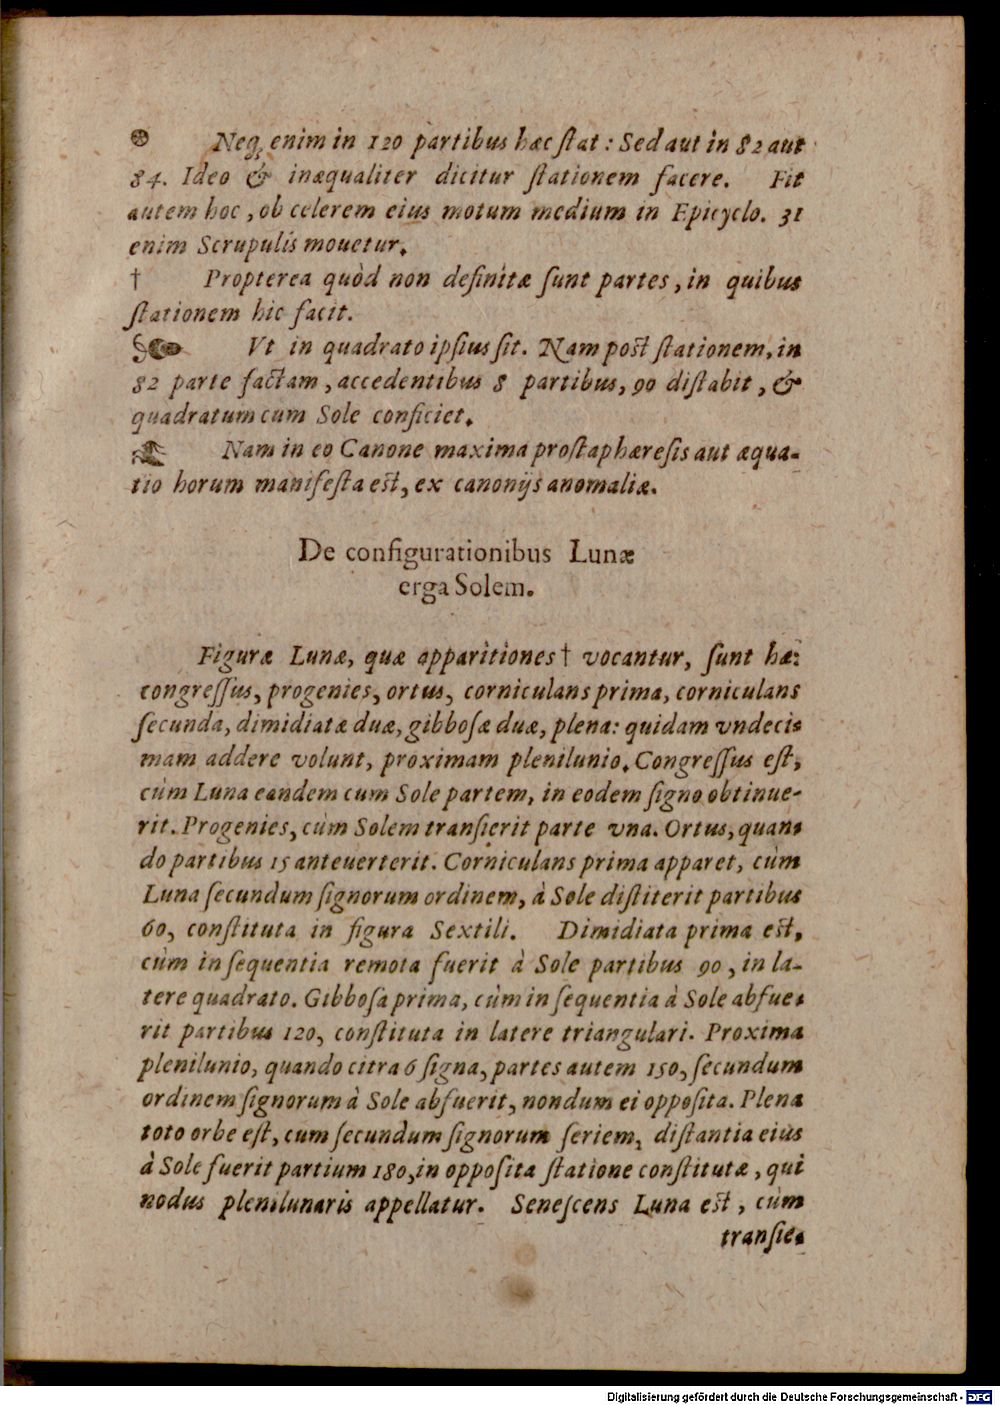 ⊛ Neq́; enim in 120 partibus hæc ſtat : Sed aut in 82 aut
84. Ideo & inæqualiter dicitur ſtationem facere. Fit
autem hoc, ob celerem eius motum medium in Epicyclo. 31
enim Scrupulis mouetur.
† Propterea quòd non definitæ ſunt partes, in quibus
ſtationem hic facit.
Vt in quadrato ipſius ſit. Nam poſt ſtationem, in
82 parte factam, accedentibus 8 partibus, 90 diſtabit, &
quadratum cum Sole conficiet.
Nam in eo Canone maxima proſtaphæreſis aut æqua-
tio horum manifeſta eſt, ex canonijs anomaliæ.
De configurationibus Lunæ
erga Solem.
Figuræ Lunæ, quæ apparitiones † vocantur, ſunt hæ:
congreſſus, progenies, ortus, corniculans prima, corniculans
ſecunda, dimidiatæ duæ, gibboſæ duæ, plena: quidam vndeci-
mam addere volunt, proximam plenilunio. Congreſſus eſt,
cùm Luna eandem cum Sole partem, in eodem ſigno obtinue-
rit. Progenies, cùm Solem tranſierit parte vna. Ortus, quan-
do partibus 15 anteuerterit. Corniculans prima apparet, cùm
Luna ſecundum ſignorum ordinem, à Sole diſtiterit partibus
60, conſtituta in figura Sextili. Dimidiata prima eſt,
cùm in ſequentia remota fuerit à Sole partibus 90, in la-
tere quadrato. Gibboſa prima, cùm in ſequentia à Sole abfue-
rit partibus 120, conſtituta in latere triangulari. Proxima
plenilunio, quando citra 6 ſigna, partes autem 150, ſecundum
ordinem ſignorum à Sole abfuerit, nondum ei oppoſita. Plena
toto orbe eſt, cum ſecundum ſignorum ſeriem, diſtantia eius
à Sole fuerit partium 180, in oppoſita ſtatione conſtitutæ, qui
nodus plenilunaris appellatur. Seneſcens Luna eſt, cùm
tranſie-
Digitalisierung gefördert durch die Deutsche Forschungsgemeinschaft - DFG